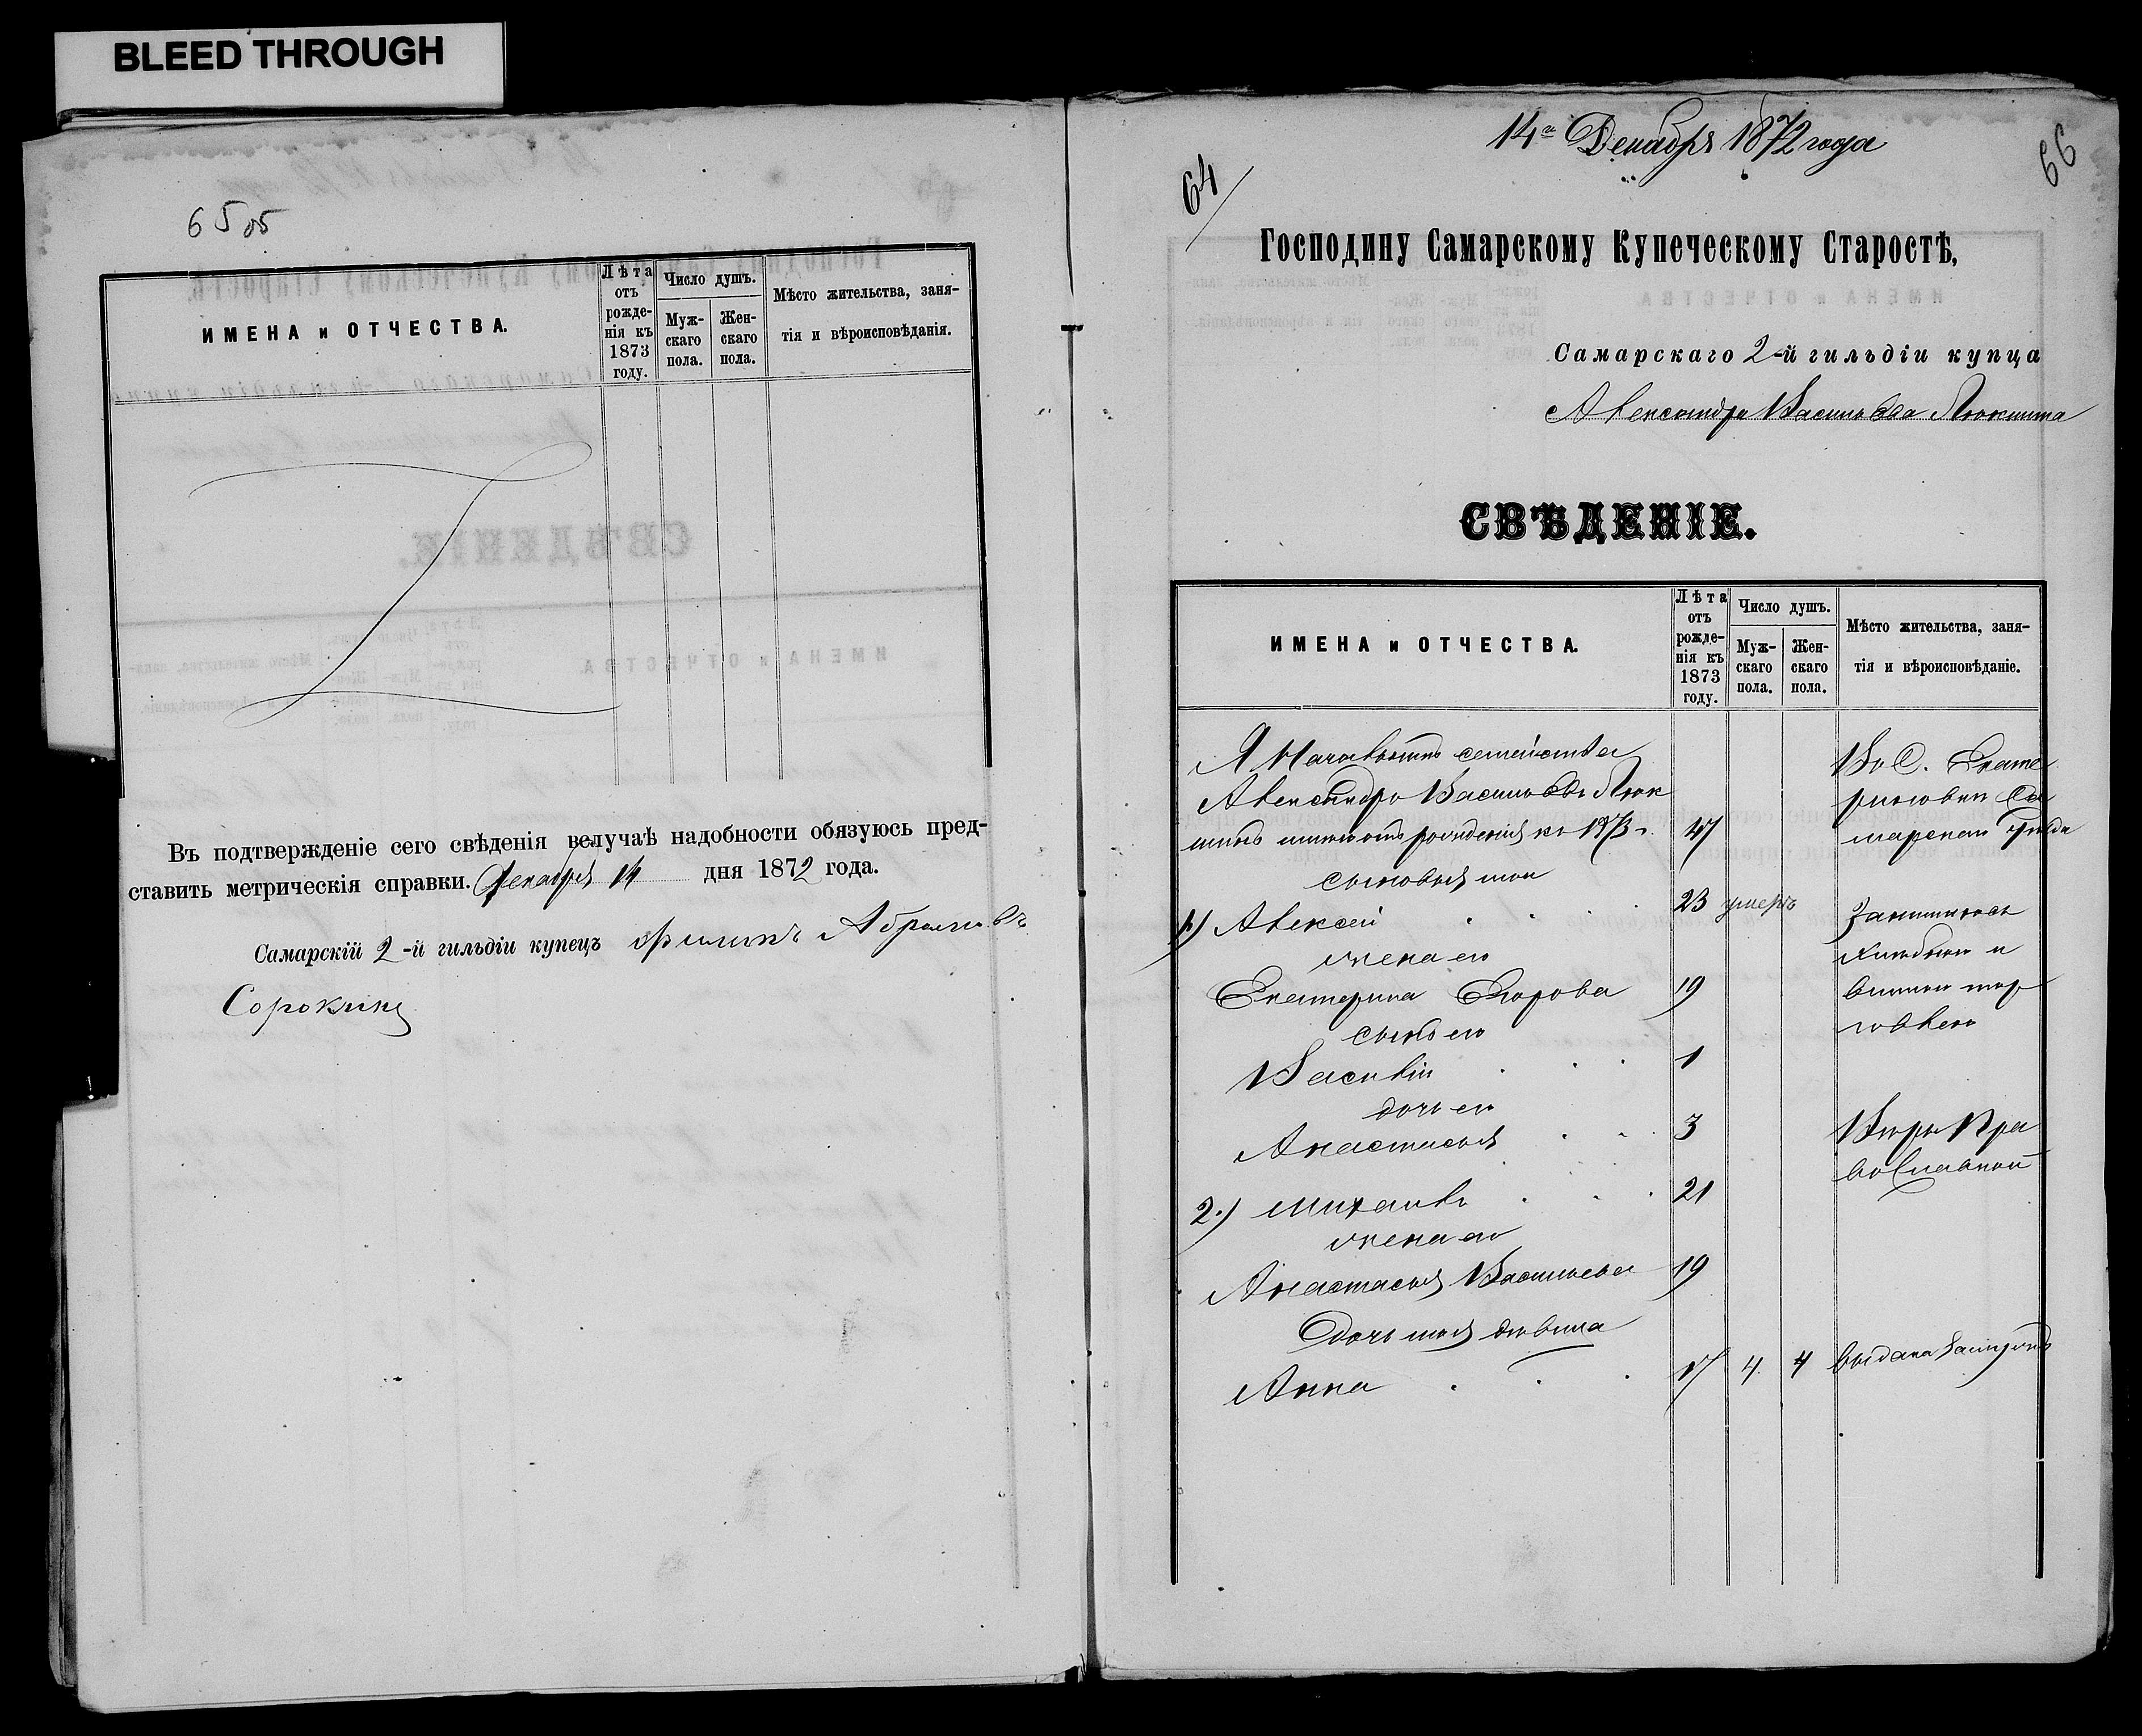 BLEED THROUGH
65 об
ИМЕНА и ОТЧЕСТВА.
Лѣта отъ рожде-нія къ 1873 году.
Число душъ.
Муж-скаго пола.
Жен-скаго пола.
Мѣсто жительства, заня-
тія и вѣроисповѣданія.
Въ подтвержденіе сего свѣденія велучаѣ надобности обязуюсь пред-
ставить метрическія справки. Декабря 14 дня 1872 года.
Самарскій 2-й гильдіи купецъ Филипъ Абрамовъ
Сорокинъ
14го Декабря 1872 года
64
66
Господину Самарскому Купеческому Старостѣ,
Самарскаго 2-й гильдіи купца
Александра Васильева
СВѢДЕНІЕ.
ИМЕНА и ОТЧЕСТВА.
Лѣта отъ рожде-нія къ 1873 году.
Число душъ.
Муж-скаго пола.
Жен-скаго пола.
Мѣсто жительства, заня-
тія и вѣроисповѣданіе.
Я Начальникъ семейства
Александръ Васильевъ
отъ рожденія къ 1873 г. 47
Въ С. Екате
риновки Са
марскаго уѣзда
сыновья мои
1) Алексей 23 умеръ
жена его
Екатерина Егорова 19
сынъ его
Василій 1
дочь его
Анастасья 3
Занимаюсь
хлебною и
винною тор
говлею
Веры Пра
вославной
2.) Михаилъ 21
жена его
Анастасья Васильева 19
Дочь моя девица
Анна 17 4 4 выдана замужъ